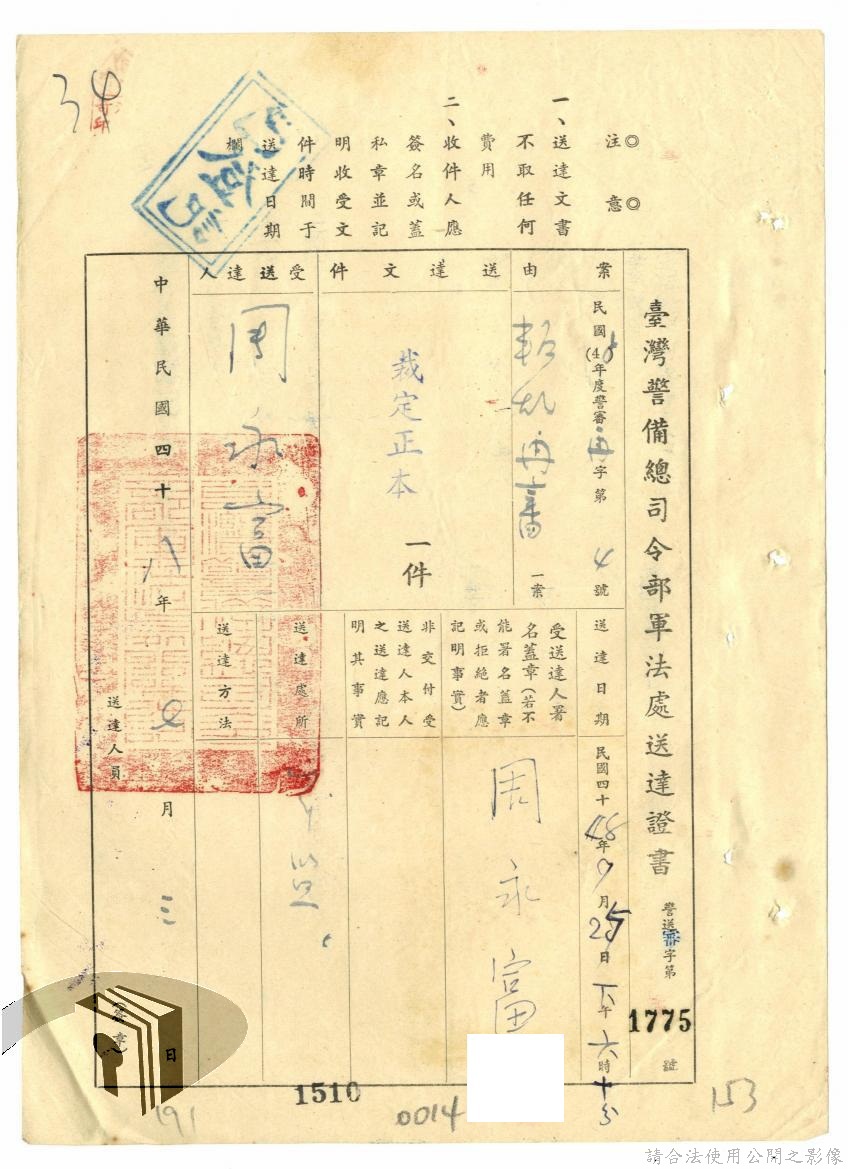 34
◎注意◎
一、送達文書
不取任何
費用
二、收件人應
簽名或蓋
私章並記
明收受文
件時間于
送達日期
欄
臺灣警備總司令部軍法處送達證書
警送審字第
1775
號
案由
民國(48年度警審再字第4號
叛亂再審
一案
送達文件
裁定正本
一件
受送達人
周永富
送達日期
民國四十48年9月25日下午六時十分
受送達人署
名蓋章(若不
能署名蓋章
或拒絕者應
記明事實)
周永富
非交付受
送達人本人
之送達應記
明其事實
送達處所
送達方法
中華民國四十八年 月三 日
送達人員
簽章
1510
0014
191
153
請合法使用公開之影像